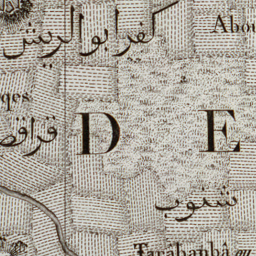 كفر ابو الريش
Abou
qes
قراقص
D E
شنوب
Tarâbanbâ ou